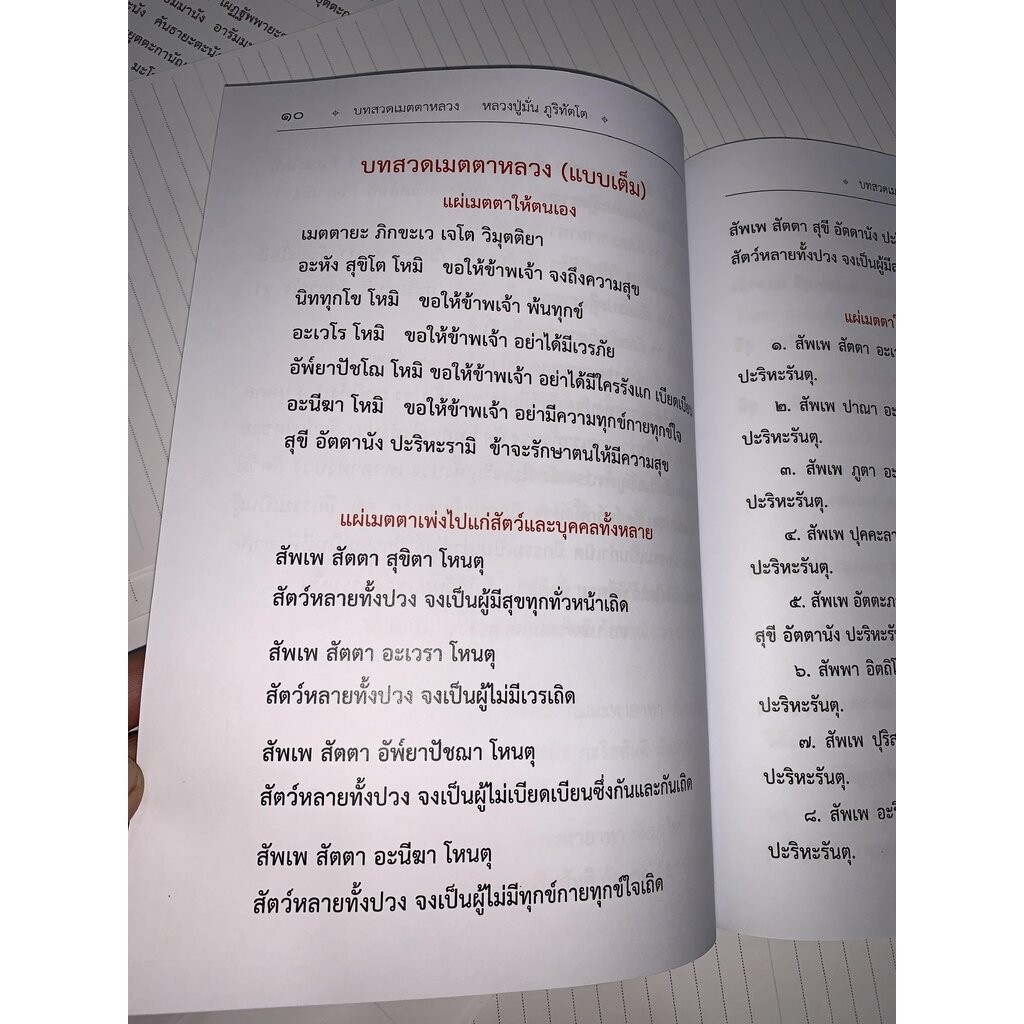 ๑๐ บทสวดเมตตาหลวง หลวงปู่มั่น ภูริทัตโต
บทสวดเมตตาหลวง (แบบเต็ม)
แผ่เมตตาให้ตนเอง
เมตตายะ ภิกขะเว เจโต วิมุตติยา
อะหัง สุขิโต โหมิ ขอให้ข้าพเจ้า จงถึงความสุข
นิททุกโข โหมิ ขอให้ข้าพเจ้า พ้นทุกข์
อะเวโร โหมิ ขอให้ข้าพเจ้า อย่าได้มีเวรภัย
อัพ๎ยาปัชโฌ โหมิ ขอให้ข้าพเจ้า อย่าได้มีใครรังแก เบียดเบียน
อะนีฆา โหมิ ขอให้ข้าพเจ้า อย่ามีความทุกข์กายทุกข์ใจ
สุขี อัตตานัง ปะริหะรามิ ข้าจะรักษาตนให้มีความสุข
แผ่เมตตาเพ่งไปแก่สัตว์และบุคคลทั้งหลาย
สัพเพ สัตตา สุขิตา โหนตุ
สัตว์หลายทั้งปวง จงเป็นผู้มีสุขทุกทั่วหน้าเถิด
สัพเพ สัตตา อะเวรา โหนตุ
สัตว์หลายทั้งปวง จงเป็นผู้ไม่มีเวรเถิด
สัพเพ สัตตา อัพ๎ยาปัชฌา โหนตุ
สัตว์หลายทั้งปวง จงเป็นผู้ไม่เบียดเบียนซึ่งกันและกันเถิด
สัพเพ สัตตา อะนีฆา โหนตุ
สัตว์หลายทั้งปวง จงเป็นผู้ไม่มีทุกข์กายทุกข์ใจเถิด
สัพเพ สัตตา สุขี อัตตานัง
สัตว์หลายทั้งปวง
๑. สัพเพ สัตตา
ปะริหะรันตุ.
๒. สัพเพ ปาณา
ปะริหะรันตุ.
๓. สัพเพ ภูตา
ปะริหะรันตุ.
๔. สัพเพ
ปะริหะรันตุ.
๕. สัพเพ
สุขี อัตตานัง
๖. สัพพา
ปะริหะรันตุ.
๗. สัพเพ
ปะริหะรันตุ.
๘. สัพเพ
ปะริหะรันตุ.